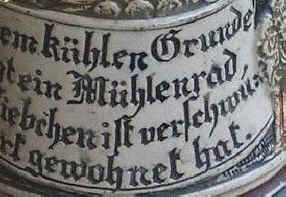 em kühlen Grunde
t ein Mühlenrad,
iebchen ist verschwu
rt gewohnet hat.